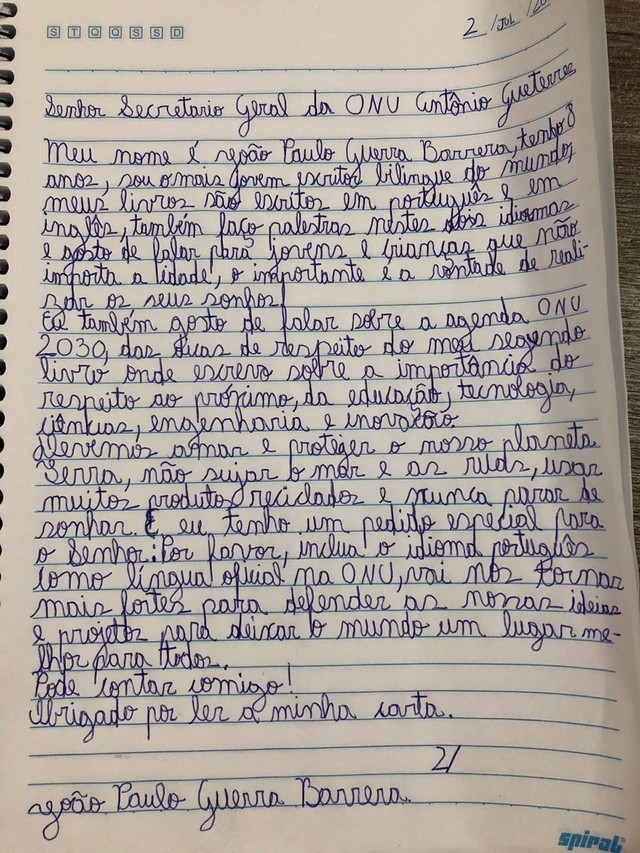 S T Q Q S S D
2 / Jul / 20
Senhor Secretario Geral da ONU António Gueterres
Meu nome é João Paulo Guerra Barrera, tenho 8
anos, sou o mais jovem escritor bilingue do mundo,
meus livros são escritos em português e em
inglês, também faço palestras nestes dois idiomas
e gosto de falar para jovens e crianças que não
importa a idade, o importante é a vontade de reali-
zar os seus sonhos!
Eu também gosto de falar sobre a agenda ONU
2030, das duas de respeito do meu segundo
livro onde escrevo sobre a importância do
respeito ao próximo, da educação, tecnologia,
ciências, engenharia e inovação.
Devemos amar e proteger o nosso planeta
Terra, não sujar o mar e as ruas, usar
muitos produtos reciclados e nunca parar de
sonhar. E eu tenho um pedido especial para
o Senhor: Por favor, inclua o idioma português
como língua oficial na ONU, vai nos tornar
mais fortes para defender as nossas ideias
e projetos para deixar o mundo um lugar me-
lhor para todos.
Pode contar comigo!
Obrigado por ler a minha carta.
João Paulo Guerra Barrera
spiral